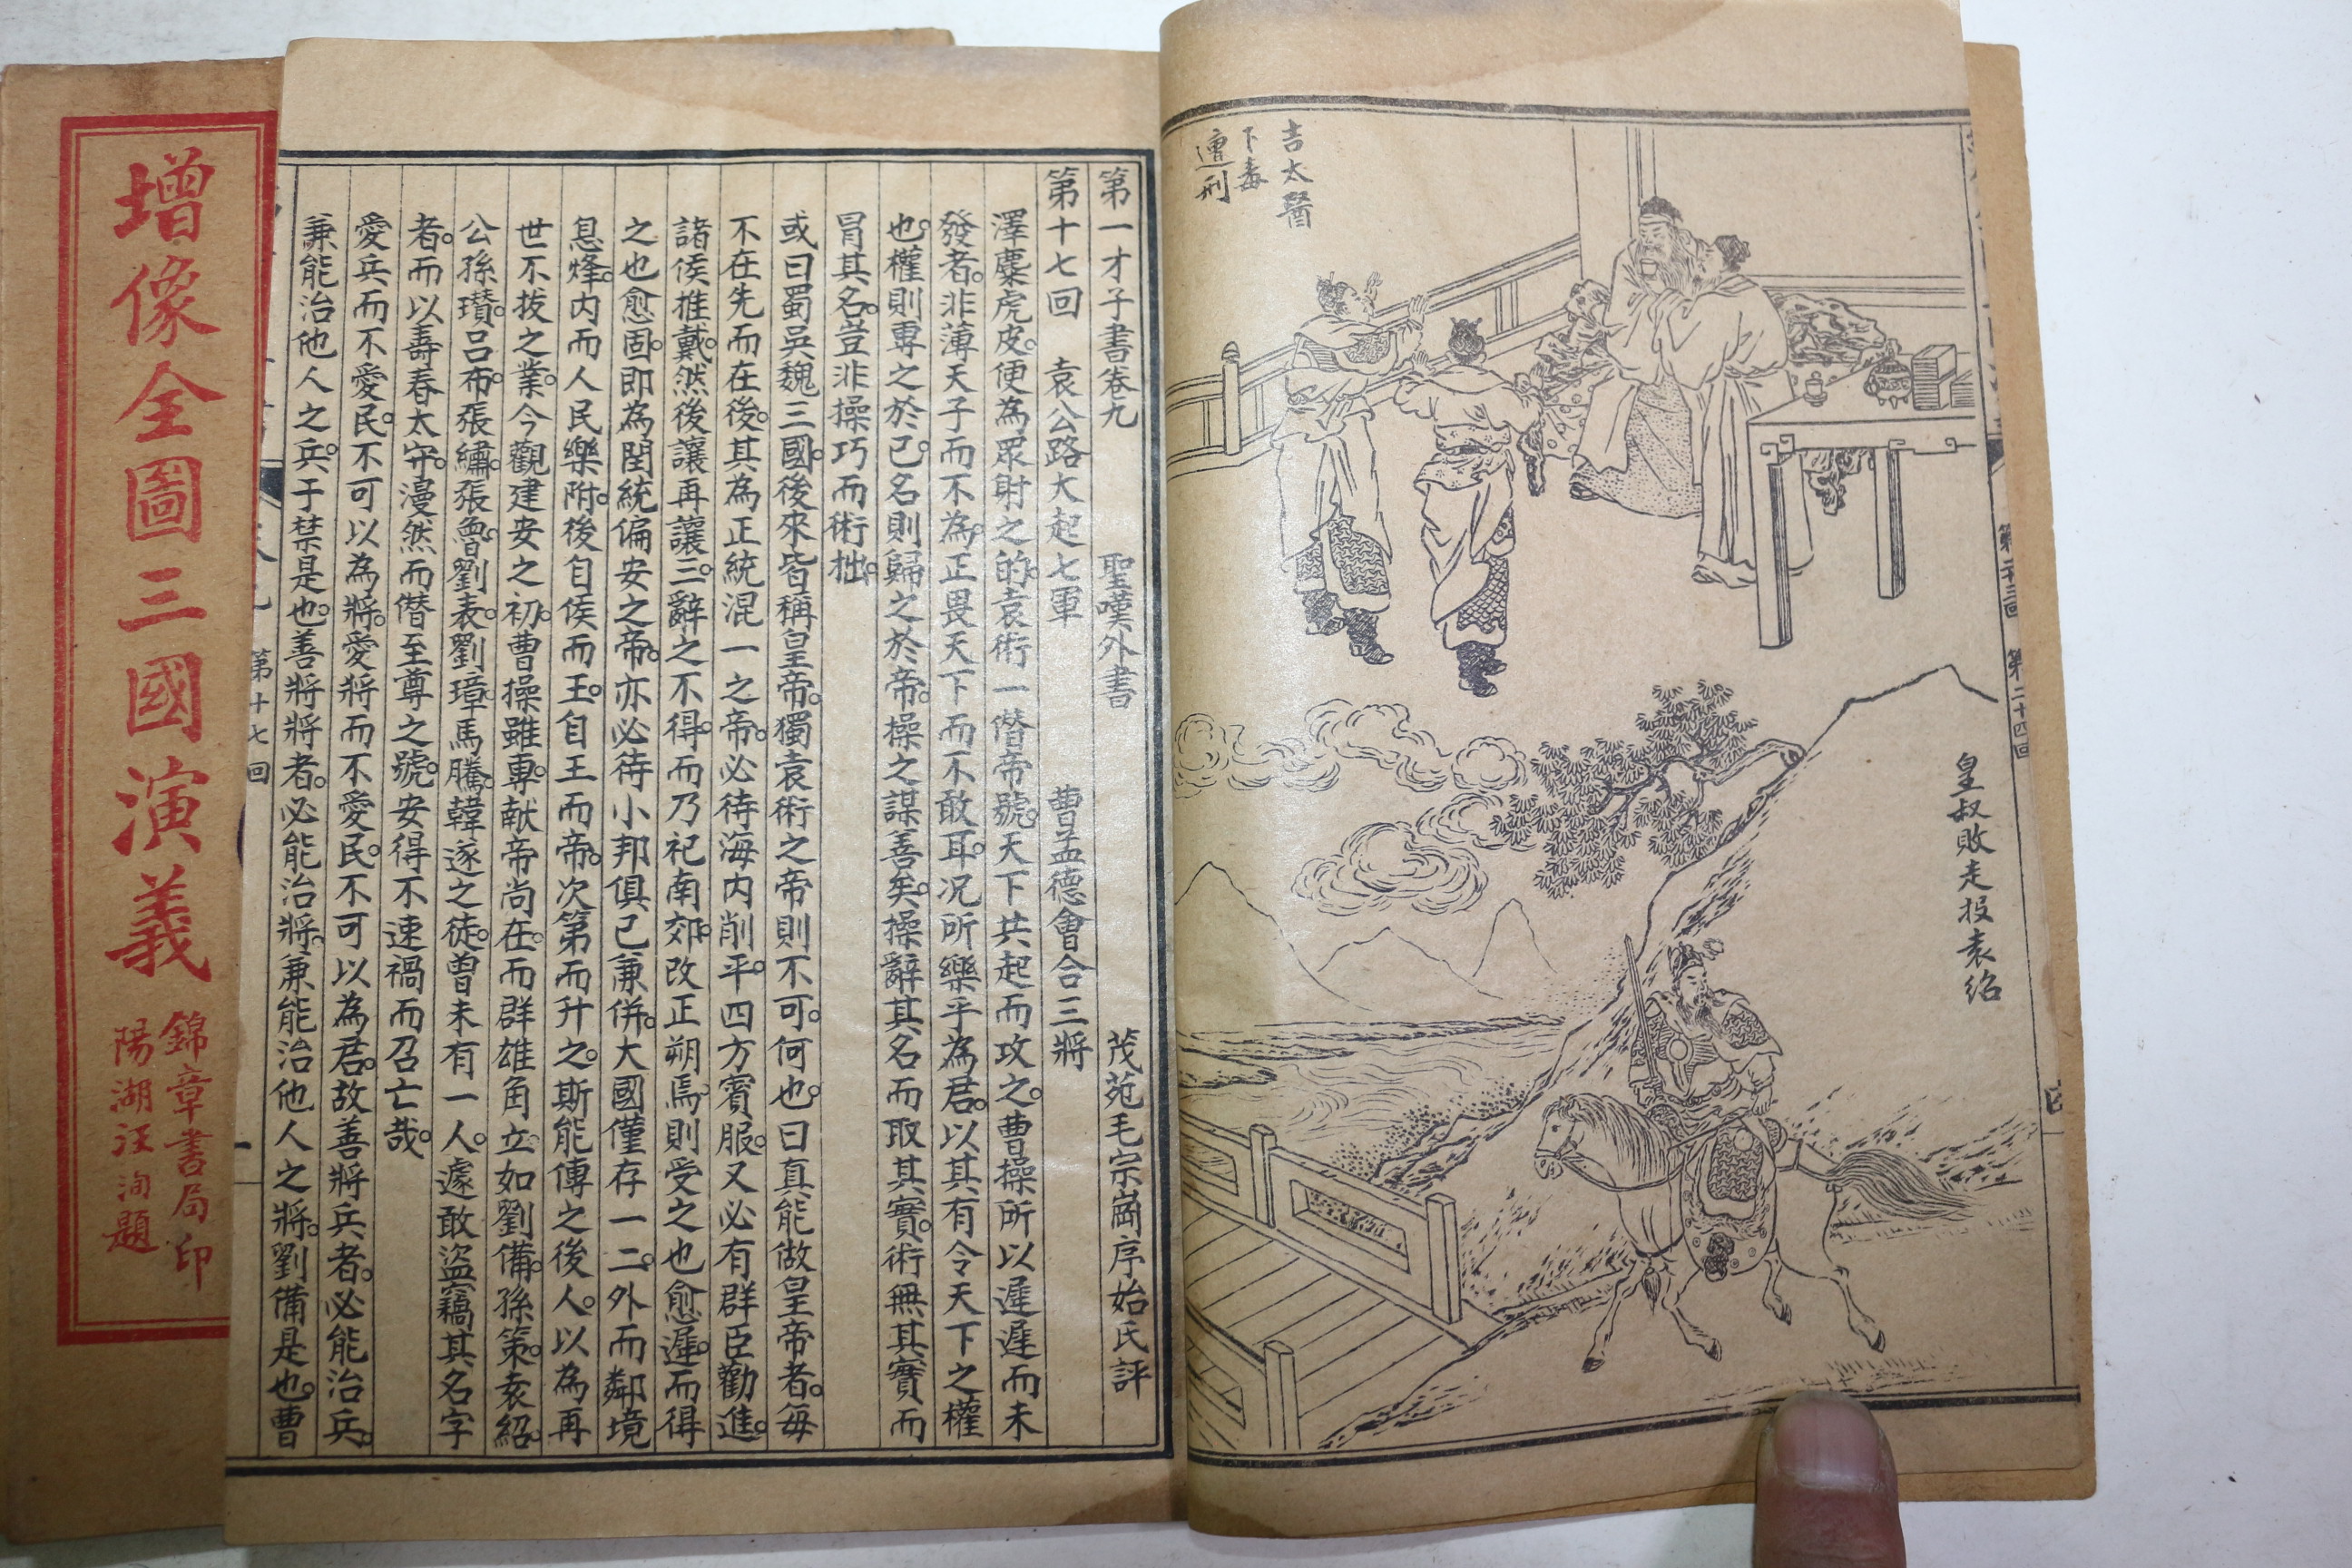 增像全圖三國演義
錦章書局印
陽湖汪洵題
吉太醫
下毒
遭刑
第二十三回
第二十四回
皇叔敗走投袁紹
第一才子書卷九
聖嘆外書
茂苑毛宗崗序始氏評
第十七回　袁公路大起七軍　曹孟德會合三將
澤麋虎皮。便為眾射之的。袁術一僭帝號。天下共起而攻之。曹操所以遲遲而未
發者。非薄天子而不為。正畏天下而不敢耳。况所樂乎為君。以其有令天下之權
也。權則專之於己。名則歸之於帝。操之謀善矣。操辭其名而取其實。術無其實而
冒其名。豈非操巧而術拙。
或曰蜀吳魏三國。後來皆稱皇帝。獨袁術之帝則不可。何也。曰真能做皇帝者。每
不在先而在後。其為正統混一之帝。必待海內削平。四方賓服。又必有群臣勸進。
諸侯推戴。然後讓再讓三。辭之不得。而乃祀南郊。改正朔焉。則受之也愈遲。而得
之也愈固。即為閏統偏安之帝。亦必待小邦俱已兼併。大國僅存一二。外而鄰境
息烽。內而人民樂附。後自侯而王。自王而帝。次第而升之。斯能傳之後人。以為再
世不拔之業。今觀建安之初。曹操雖專。献帝尚在。而群雄角立。如劉備。孫策。袁紹。
公孫瓚。呂布。張繡。張魯。劉表。劉璋。馬騰。韓遂之徒。曾未有一人。遽敢盜竊其名字
者。而以壽春太守。漫然而僭至尊之號。安得不速禍而召亡哉。
愛兵而不愛民。不可以為將。愛將而不愛民。不可以為君。故善將兵者。必能治兵。
兼能治他人之兵。于禁是也。善將將者。必能治將。兼能治他人之將。劉備是也。曹
第十七回
一